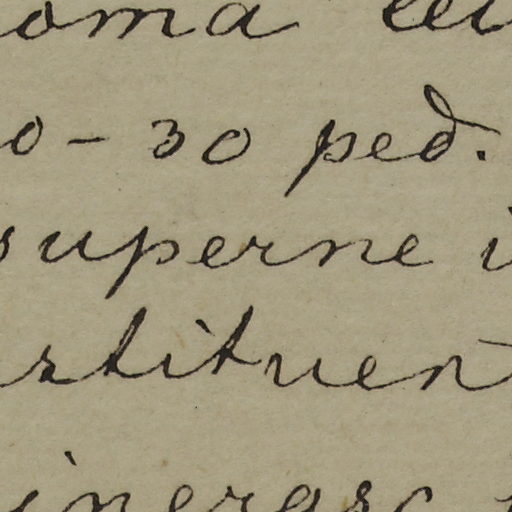 oma
0 - 30 ped.
superne
stituen
inerasc